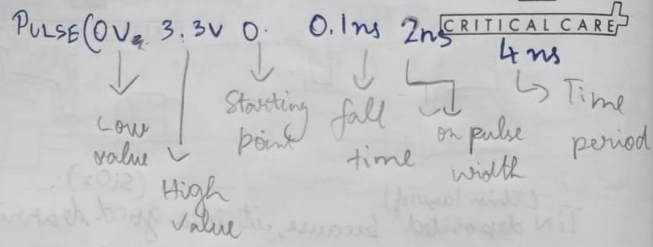 PULSE(0V 3.3V 0. 0.1ns 2ns 4ns
CRITICAL CARE
Low value
High value
Starting point
fall time
on pulse width
Time period